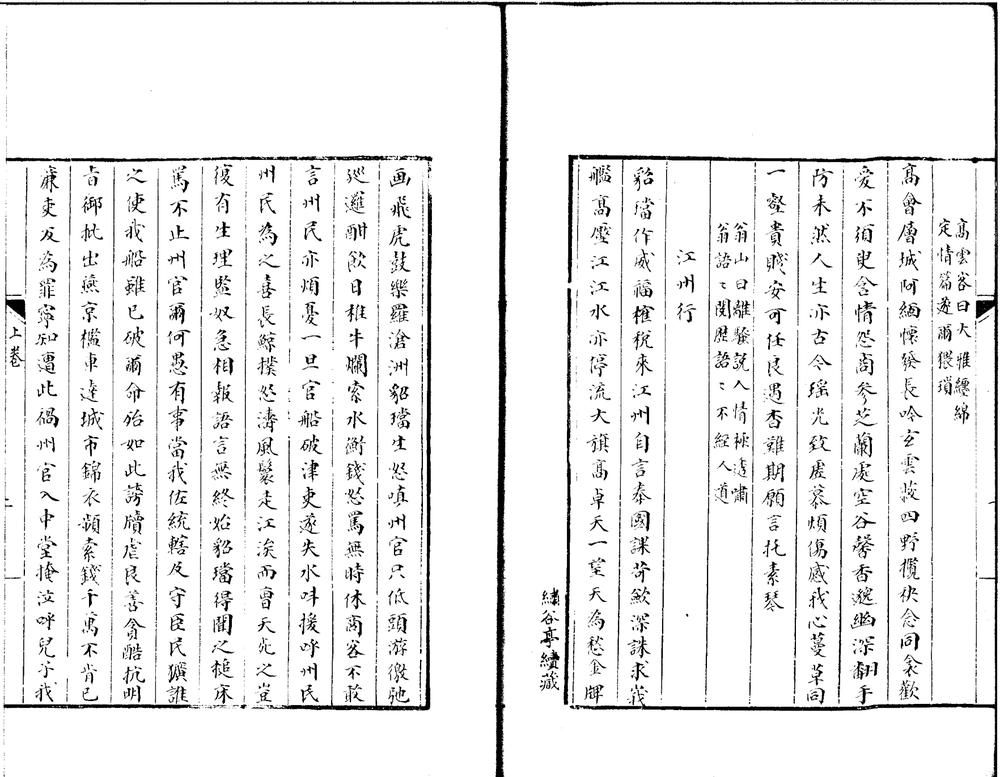 高雲客曰大雅纏綿
定情篇遜爾猥瑣
高會層城阿緬懷發長吟玄雲蔽四野攬袂念同衾歡
愛不須臾含情怨商參芝蘭處空谷馨香邈幽深翻手
防未然人生亦古今瑶光致虛慕煩傷感我心蔓草同
一壑貴賤安可任良遇杳難期願言托素琴
翁山曰離騷說人情禄遠嘯
翁語〻閱歷語〻不經人道
江州行
貂璫作威福榷稅來江州自言奉國課苛歛深誅求峩
艦高壓江江水亦停流大旗高卓天一望天為愁金牌
繡谷亭續藏
画飛虎鼓樂羅滄洲貂璫生怒嗔州官只低頭游徼馳
廵邏酣飲日椎牛爛索水衡錢怒罵無時休商客不敢
言州民亦煩憂一旦官船破津吏遂失水呌援呼州民
州民為之喜長鯨撲怒濤風鬟走江涘而曹天死之豈
復有生理監奴急相報語言無終始貂璫得聞之槌床
罵不止州官爾何愚有事當我佐統轄及守臣民獷誰
之使我船雖已破爾命殆如此謗牘虐良善貪酷抗明
旨御批出燕京檻車達城市錦衣頻索錢千萬不肯已
廉吏反為罪寧知遭此禍州官入中堂掩泣呼兒子我
上卷